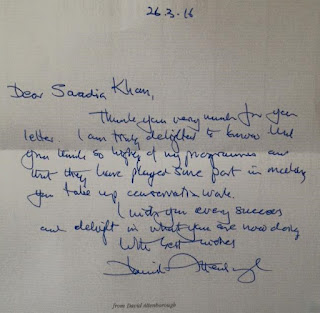 26.3.16
Dear Saadia Khan,
Thank you very much for your
letter. I am truly delighted to know that
you think so highly of my programmes and
that they have played some part in making
you take up conservation work.
I wish you every success
and delight in what you are now doing
With best wishes
David Attenborough
from David Attenborough